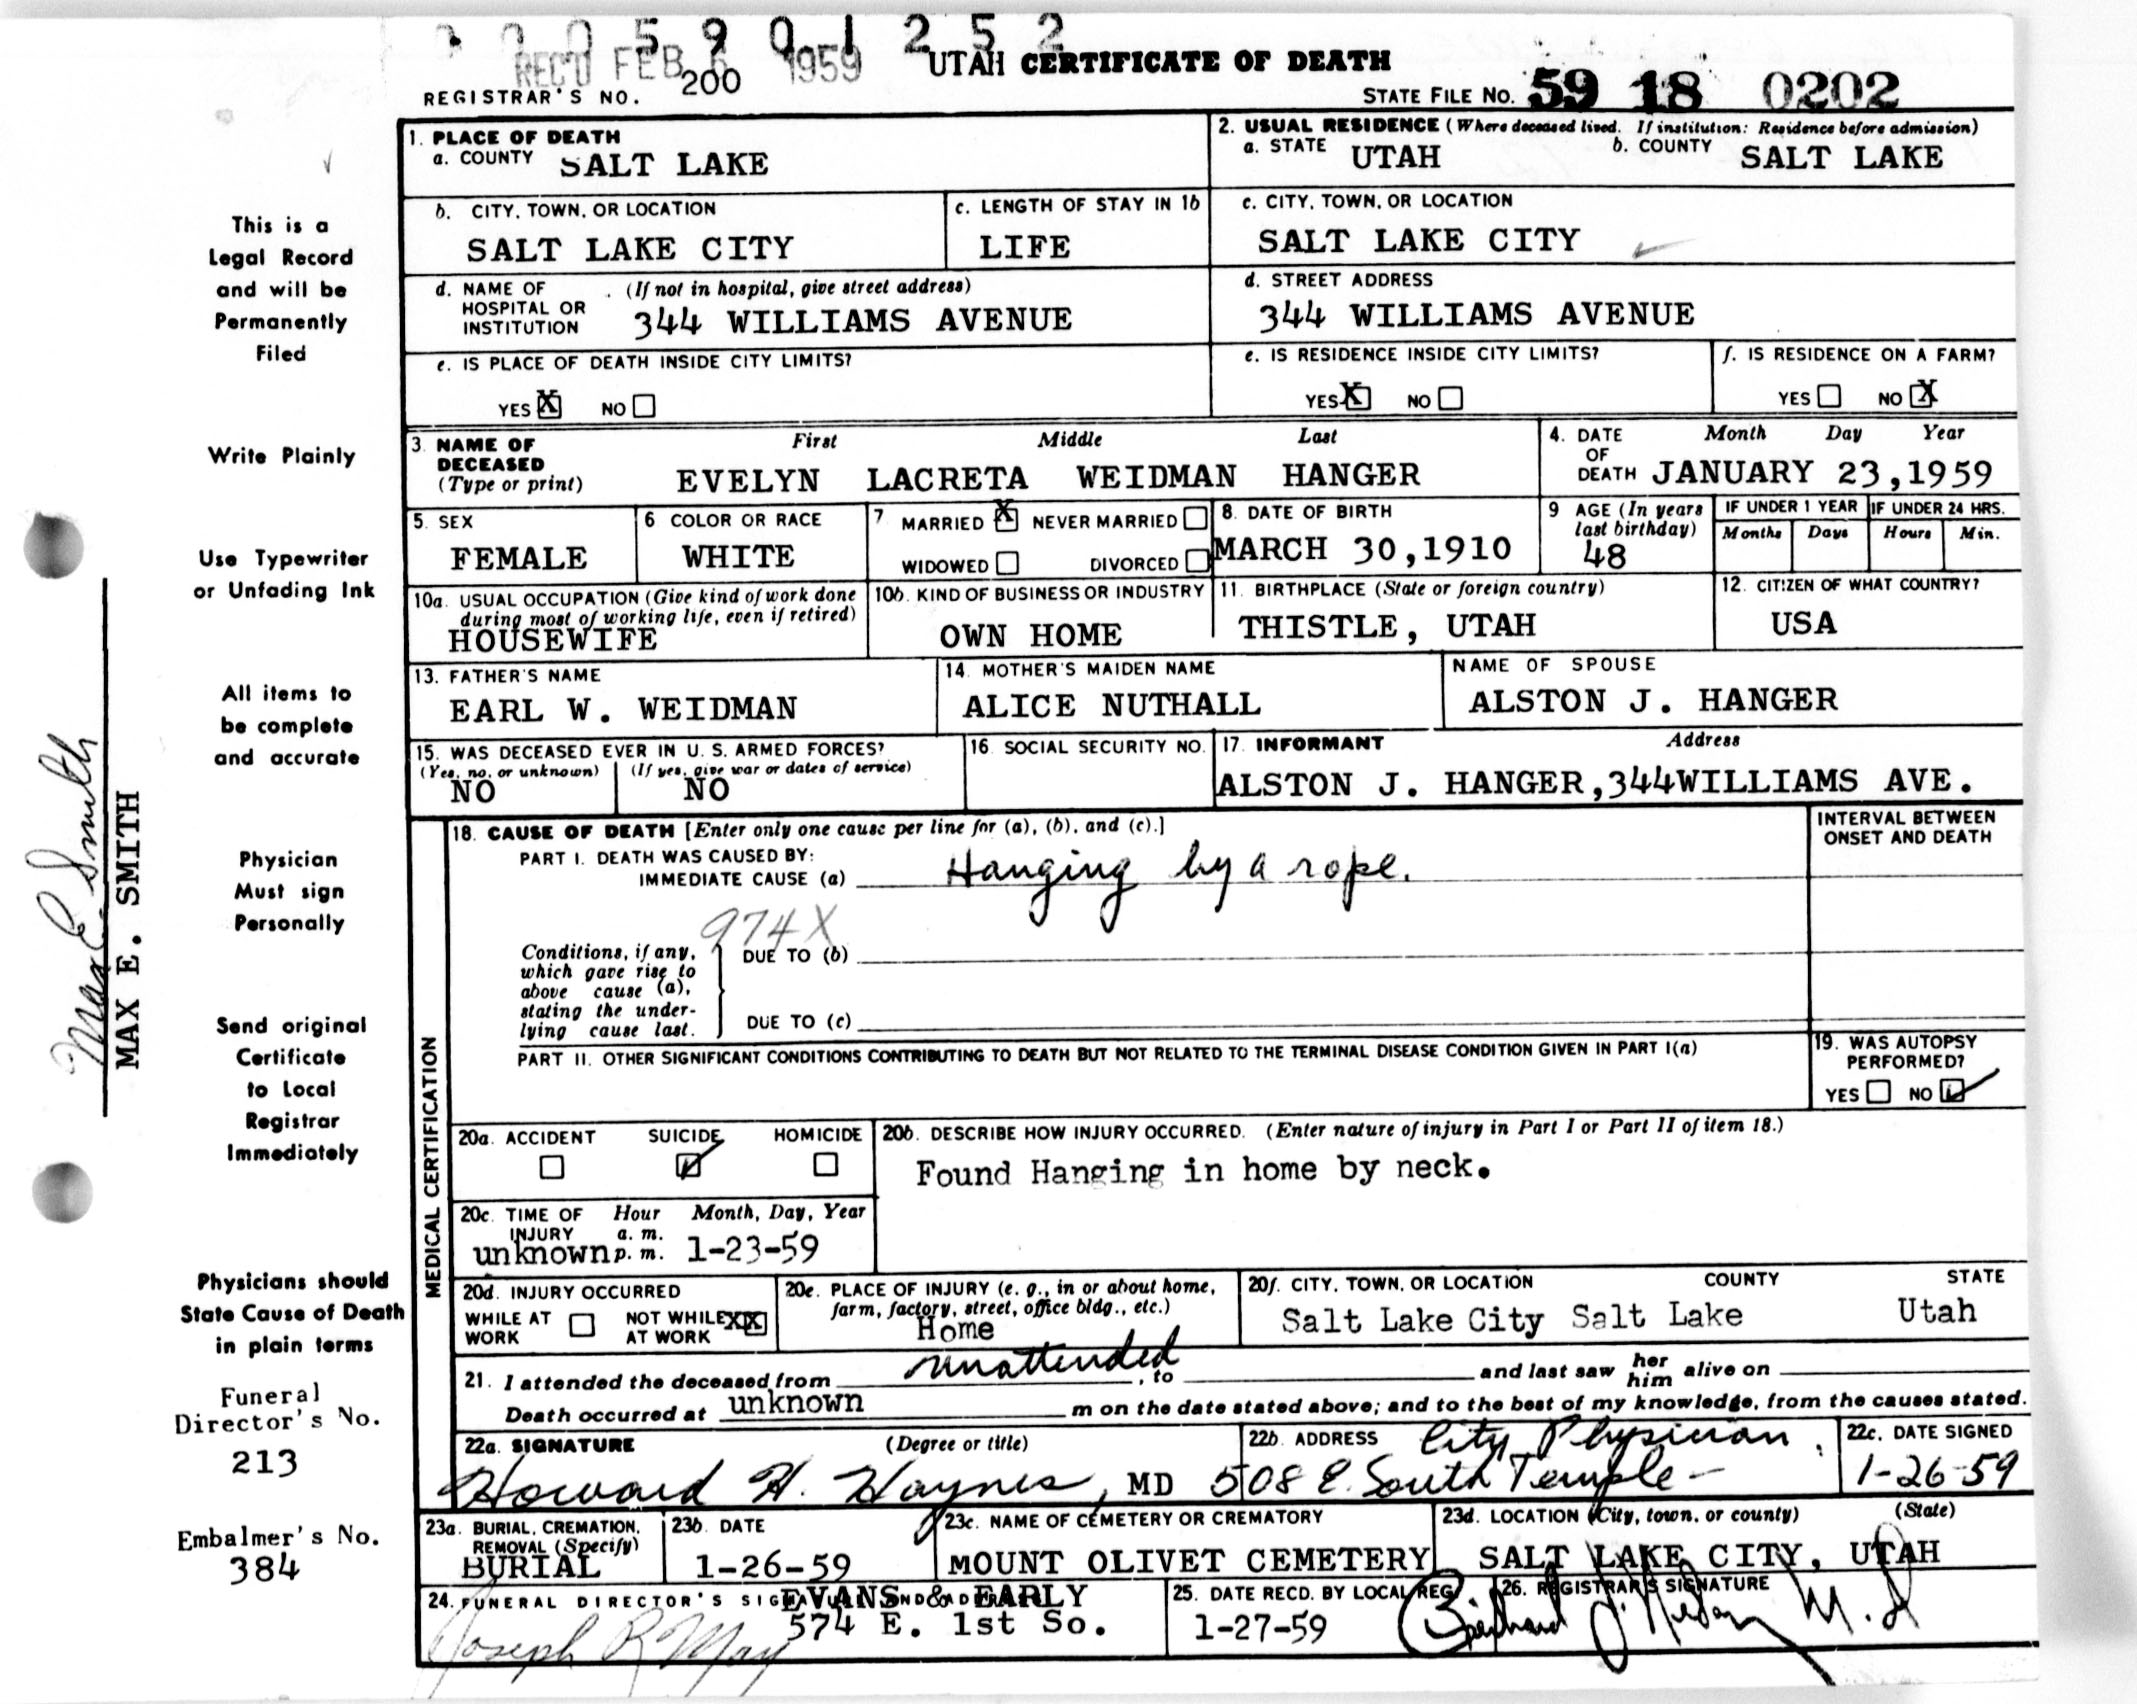 0 5 9 0 1 2 5 2
REC'D FEB 1959
200
UTAH CERTIFICATE OF DEATH
REGISTRAR'S NO.
STATE FILE NO. 59 18 0202
1. PLACE OF DEATH
a. COUNTY SALT LAKE
2. USUAL RESIDENCE (Where deceased lived. If institution: Residence before admission)
a. STATE UTAH b. COUNTY SALT LAKE
b. CITY, TOWN, OR LOCATION
SALT LAKE CITY
c. LENGTH OF STAY IN 1b
LIFE
c. CITY, TOWN, OR LOCATION
SALT LAKE CITY
d. NAME OF HOSPITAL OR INSTITUTION (If not in hospital, give street address)
344 WILLIAMS AVENUE
d. STREET ADDRESS
344 WILLIAMS AVENUE
e. IS PLACE OF DEATH INSIDE CITY LIMITS?
YES X NO
e. IS RESIDENCE INSIDE CITY LIMITS?
YES X NO
f. IS RESIDENCE ON A FARM?
YES NO X
3. NAME OF DECEASED (Type or print)
First Middle Last
EVELYN LACRETA WEIDMAN HANGER
4. DATE OF DEATH
Month Day Year
JANUARY 23,1959
5. SEX
FEMALE
6 COLOR OR RACE
WHITE
7 MARRIED X NEVER MARRIED
WIDOWED DIVORCED
8. DATE OF BIRTH
MARCH 30,1910
9 AGE (In years last birthday)
48
IF UNDER 1 YEAR
Months Days
IF UNDER 24 HRS.
Hours Min.
10a. USUAL OCCUPATION (Give kind of work done during most of working life, even if retired)
HOUSEWIFE
10b. KIND OF BUSINESS OR INDUSTRY
OWN HOME
11. BIRTHPLACE (State or foreign country)
THISTLE, UTAH
12. CITIZEN OF WHAT COUNTRY?
USA
13. FATHER'S NAME
EARL W. WEIDMAN
14. MOTHER'S MAIDEN NAME
ALICE NUTHALL
NAME OF SPOUSE
ALSTON J. HANGER
15. WAS DECEASED EVER IN U. S. ARMED FORCES?
(Yes, no, or unknown) (If yes, give war or dates of service)
NO NO
16. SOCIAL SECURITY NO.
17. INFORMANT Address
ALSTON J. HANGER,344WILLIAMS AVE.
MEDICAL CERTIFICATION
18. CAUSE OF DEATH [Enter only one cause per line for (a), (b), and (c).]
INTERVAL BETWEEN ONSET AND DEATH
PART I. DEATH WAS CAUSED BY:
IMMEDIATE CAUSE (a) Hanging by a rope.
974X
Conditions, if any, which gave rise to above cause (a), stating the underlying cause last.
DUE TO (b)
DUE TO (c)
PART II. OTHER SIGNIFICANT CONDITIONS CONTRIBUTING TO DEATH BUT NOT RELATED TO THE TERMINAL DISEASE CONDITION GIVEN IN PART I(a)
19. WAS AUTOPSY PERFORMED?
YES NO
20a. ACCIDENT SUICIDE HOMICIDE
20b. DESCRIBE HOW INJURY OCCURRED. (Enter nature of injury in Part I or Part II of item 18.)
Found Hanging in home by neck.
20c. TIME OF INJURY Hour a. m. p. m. Month, Day, Year
unknown 1-23-59
20d. INJURY OCCURRED
WHILE AT WORK NOT WHILE AT WORK XX
20e. PLACE OF INJURY (e. g., in or about home, farm, factory, street, office bldg., etc.)
Home
20f. CITY, TOWN, OR LOCATION COUNTY STATE
Salt Lake City Salt Lake Utah
21. I attended the deceased from unattended, to and last saw her him alive on
Death occurred at unknown m on the date stated above; and to the best of my knowledge, from the causes stated.
22a. SIGNATURE (Degree or title)
Howard H. Haynes, MD
22b. ADDRESS City Physician
508 E. South Temple-
22c. DATE SIGNED
1-26-59
23a. BURIAL, CREMATION, REMOVAL (Specify)
BURIAL
23b. DATE
1-26-59
23c. NAME OF CEMETERY OR CREMATORY
MOUNT OLIVET CEMETERY
23d. LOCATION (City, town, or county) (State)
SALT LAKE CITY, UTAH
24. FUNERAL DIRECTOR'S SIGNATURE AND ADDRESS
EVANS & EARLY
574 E. 1st So.
Joseph R May
25. DATE RECD. BY LOCAL REG.
1-27-59
26. REGISTRAR'S SIGNATURE
M.D
This is a
Legal Record
and will be
Permanently
Filed
Write Plainly
Use Typewriter
or Unfading Ink
All items to
be complete
and accurate
Physician
Must sign
Personally
Send original
Certificate
to Local
Registrar
Immediately
Physicians should
State Cause of Death
in plain terms
Funeral
Director's No.
213
Embalmer's No.
384
Max E. Smith
MAX E. SMITH